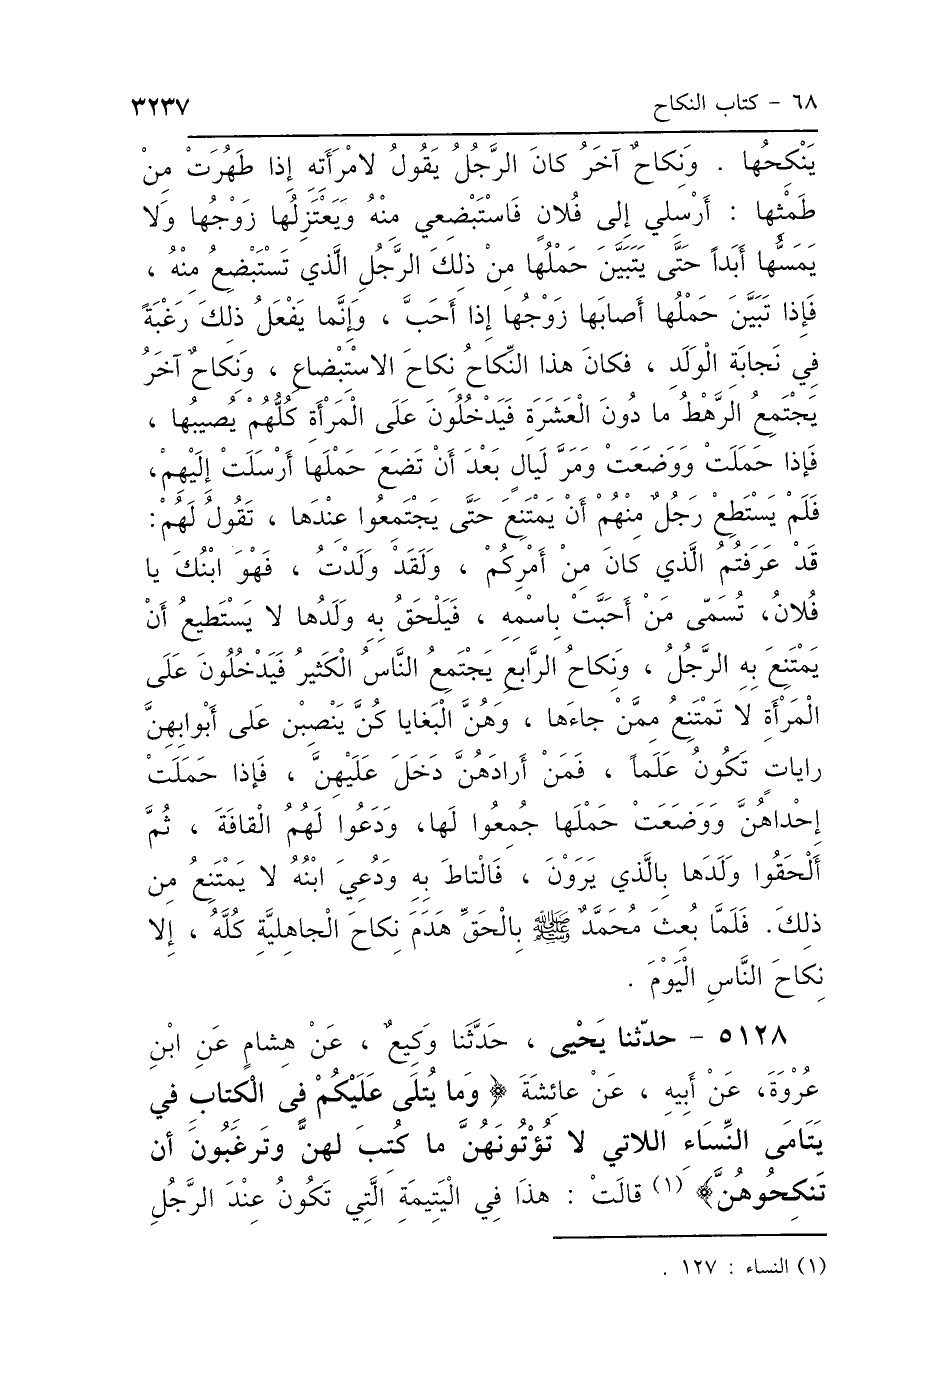 ٦٨ - كتاب النكاح ٣٢٣٧
يَنْكِحُها . وَنِكاحٌ آخَرُ كانَ الرَّجُلُ يَقُولُ لامْرَأَتِهِ إذا طَهُرَتْ مِنْ
طَمْثِها : أَرْسِلي إلى فُلانٍ فَاسْتَبْضِعي مِنْهُ وَيَعْتَزِلُها زَوْجُها وَلا
يَمَسُّها أَبَداً حَتَّى يَتَبَيَّنَ حَمْلُها مِن ذلِكَ الرَّجُلِ الَّذي تَسْتَبْضِعُ مِنهُ ،
فَإذا تَبَيَّنَ حَمْلُها أصابَها زَوْجُها إذا أَحَبَّ ، وَإنَّما يَفْعَلُ ذلِكَ رَغْبَةً
في نَجابَةِ الْوَلَدِ ، فكانَ هذا النِّكاحُ نِكاحَ الاسْتِبْضاعِ ، وَنِكاحٌ آخَرُ
يَجْتَمِعُ الرَّهْطُ ما دُونَ الْعَشَرَةِ فَيَدْخُلُونَ عَلَى الْمَرْأَةِ كُلُّهُمْ يُصيبُها ،
فَإذا حَمَلَتْ وَوَضَعَتْ وَمَرَّ لَيالٍ بَعْدَ أَنْ تَضَعَ حَمْلَها أَرْسَلَتْ إلَيْهِمْ،
فَلَمْ يَسْتَطِعْ رَجُلٌ مِنْهُمْ أَنْ يَمْتَنِعَ حَتَّى يَجْتَمِعُوا عِنْدَها ، تَقُولُ لَهُمْ:
قَدْ عَرَفتُمُ الَّذي كانَ مِنْ أَمْرِكُمْ ، وَلَقَدْ وَلَدْتُ ، فَهْوَ ابْنُكَ يا
فُلانُ، تُسَمّى مَنْ أَحَبَّتْ بِاسْمِهِ ، فَيَلْحَقُ بِهِ وَلَدُها لا يَسْتَطيعُ أَنْ
يَمْتَنِعَ بِهِ الرَّجُلُ ، وَنِكاحُ الرَّابِعِ يَجْتَمِعُ النَّاسُ الْكَثيرُ فَيَدْخُلُونَ عَلَى
الْمَرْأَةِ لا تَمْتَنِعُ مِمَّنْ جاءَها ، وَهُنَّ الْبَغايا كُنَّ يَنْصِبْن عَلى أَبْوابِهِنَّ
راياتٍ تَكُونُ عَلَماً ، فَمَنْ أرادَهُنَّ دَخَلَ عَلَيْهِنَّ ، فَإذا حَمَلَتْ
إحْداهُنَّ وَوَضَعَتْ حَمْلَها جُمِعُوا لَها، وَدَعُوا لَهُمُ الْقافَةَ ، ثُمَّ
أَلْحَقُوا وَلَدَها بِالَّذي يَرَوْنَ ، فَالْتاطَ بِهِ وَدُعِيَ ابْنُهُ لا يَمْتَنِعُ مِن
ذلِكَ. فَلَمَّا بُعِثَ مُحَمَّدٌ ﷺ بِالْحَقِّ هَدَمَ نِكاحَ الْجاهِليَّةِ كُلَّهُ ، إلا
نِكاحَ النَّاسِ الْيَوْمَ .
٥١٢٨ - حدّثنا يَحْيٰى ، حَدَّثَنا وَكِيعٌ ، عَنْ هِشامٍ عَنِ ابْنِ
عُرْوَةَ، عَنْ أَبيهِ ، عَنْ عائِشَةَ ﴿ وَما يُتلَى عَلَيْكُمْ فِى الْكِتابِ فِي
يَتَامَى النِّسَاءِ اللاتي لا تُؤْتُونَهُنَّ ما كُتِبَ لهنَّ وتَرغَبُونَ أن
تَنكِحُوهُنَّ﴾ (١) قالَتْ : هذَا فِي الْيَتِيمَةِ الَّتِي تَكُونُ عِنْدَ الرَّجُلِ
(١) النساء : ١٢٧ .